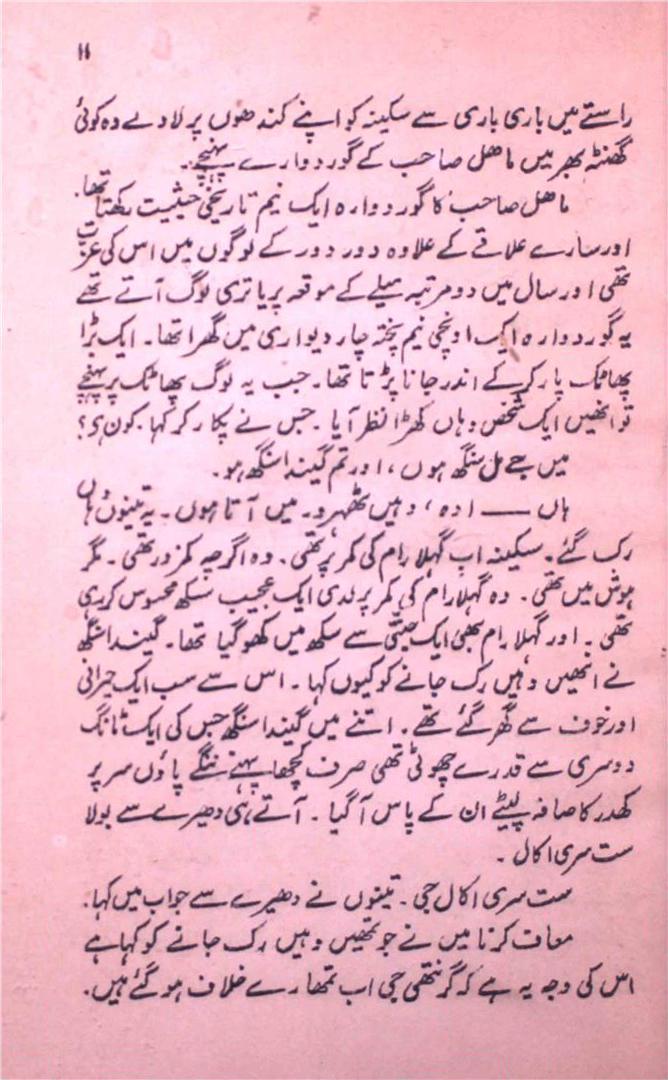 ۱۶
راستے میں باری باری سے سکینہ کو اپنے کندھوں پر لادے وہ کوئی
گھنٹہ بھر میں ماھل صاحب کے گوردوارے پہنچے۔
ماھل صاحب کا گوردوارہ ایک نیم تاریخی حیثیت رکھتا تھا۔
اور سارے علاقے کے علاوہ دور دور کے لوگوں میں اس کی عزت
تھی اور سال میں دو مرتبہ میلے کے موقعہ پر یاتری لوگ آتے تھے
یہ گوردوارہ ایک اونچی نیم پختہ چار دیواری میں گھرا تھا۔ ایک بڑا
پھاٹک پار کر کے اندر جانا پڑتا تھا۔ جب یہ لوگ پھاٹک پر پہنچے
تو انھیں ایک شخص وہاں کھڑا نظر آیا۔ جس نے پکار کر کہا۔ کون ہی؟
میں جے مل سنگھ ہوں، اور تم گینداسنگھ ہو۔
ہاں —— اوہ، وہیں ٹھہرو۔ میں آتا ہوں۔ یہ تینوں وہاں
رک گئے۔ سکینہ اب گہلا رام کی کمر پر تھی۔ وہ اگرچہ کمزور تھی۔ مگر
ہوش میں تھی۔ وہ گہلا رام کی کمر پر لدی ایک عجیب سکھ محسوس کر رہی
تھی۔ اور گہلا رام بھی ایک جیتی سے سکھ میں کھو گیا تھا۔ گینداسنگھ
نے انھیں وہیں رک جانے کو کیوں کہا۔ اس سے سب ایک حیرانی
اور خوف سے گھر گئے تھے۔ اتنے میں گینداسنگھ جس کی ایک ٹانگ
دوسری سے قدرے چھوٹی تھی صرف کچھا پہنے ننگے پاؤں سر پر
کھدر کا صافہ لپیٹے ان کے پاس آ گیا۔ آتے ہی دھیرے سے بولا
ست سری اکال۔
ست سری اکال جی۔ تینوں نے دھیرے سے جواب میں کہا۔
معاف کرنا میں نے جو تمھیں وہیں رک جانے کو کہا ہے
اس کی وجہ یہ ہے کہ گرنتھی جی اب تمھارے خلاف ہو گئے ہیں۔